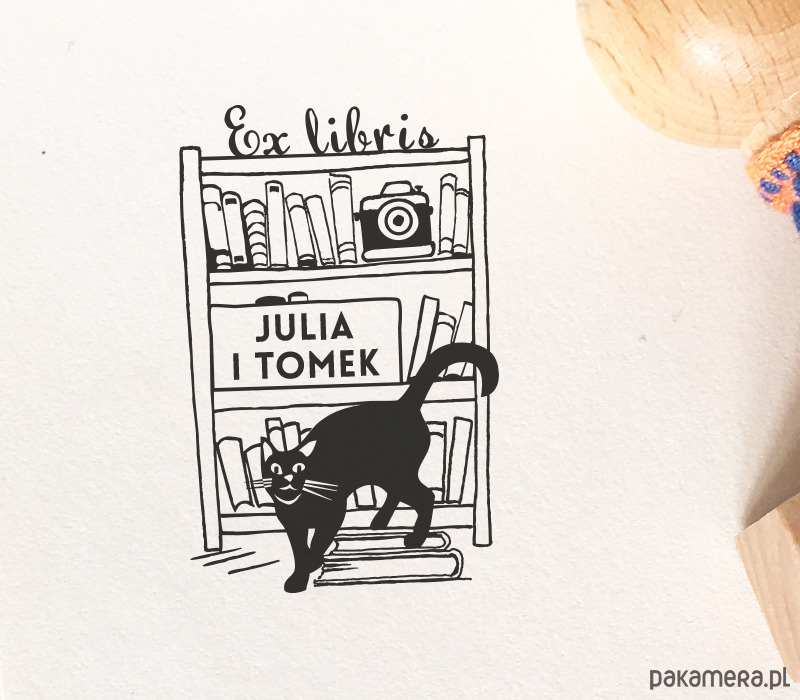 Ex libris
JULIA
I TOMEK
pakamera.pl